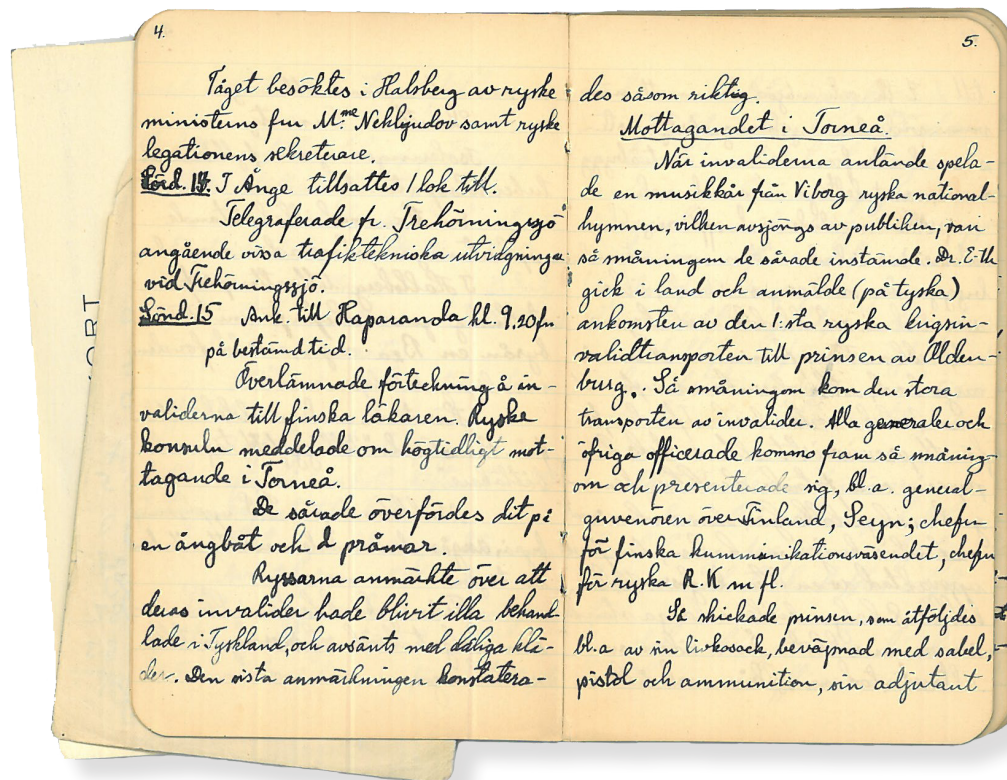 4.
Tåget besöktes i Halsberg av ryske
ministerns fru M.me Nekljudov samt ryske
legationens sekreterare.
Lörd. 14. I Ånge tillsattes 1 lok till.
Telegraferade fr. Trehörningsjö
angående vissa trafiktekniska utvidgningar
vid Trehörningssjö.
Sönd. 15 Ank. till Haparanda kl. 9,20 fm
på bestämd tid.
Överlämnade förteckning å in-
validerna till finska läkaren. Ryske
konsuln meddelade om högtidligt mot-
tagande i Torneå.
De sårade överfördes dit på
en ångbåt och 2 pråmar.
Ryssarna anmärkte över att
deras invalider hade blivit illa behand-
lade i Tyskland, och avsänts med dåliga klä-
der. Den sista anmärkningen konstatera-
5.
des såsom riktig.
Mottagandet i Torneå.
När invaliderna anlände spela-
de en musikkår från Viborg ryska national-
hymnen, vilken avsjöngs av publiken, vari
så småningom de sårade instämde. Dr. E-th
gick i land och anmälde (på tyska)
ankomsten av den 1:sta ryska krigsin-
validtransporten till prinsen av Olden-
burg. Så småningom kom den stora
transporten av invalider. Alla generaler och
öfriga officerade kommo fram så småning-
om och presenterade sig, bl.a. general-
guvenören över Finland, Seyn; chefen
för finska kummunikationsväsendet, chefen
för ryska R.K m fl.
Så skickade prinsen, som åtföljdes
bl.a av sin livkosack, beväpnad med sabel,
pistol och ammunition, sin adjutant